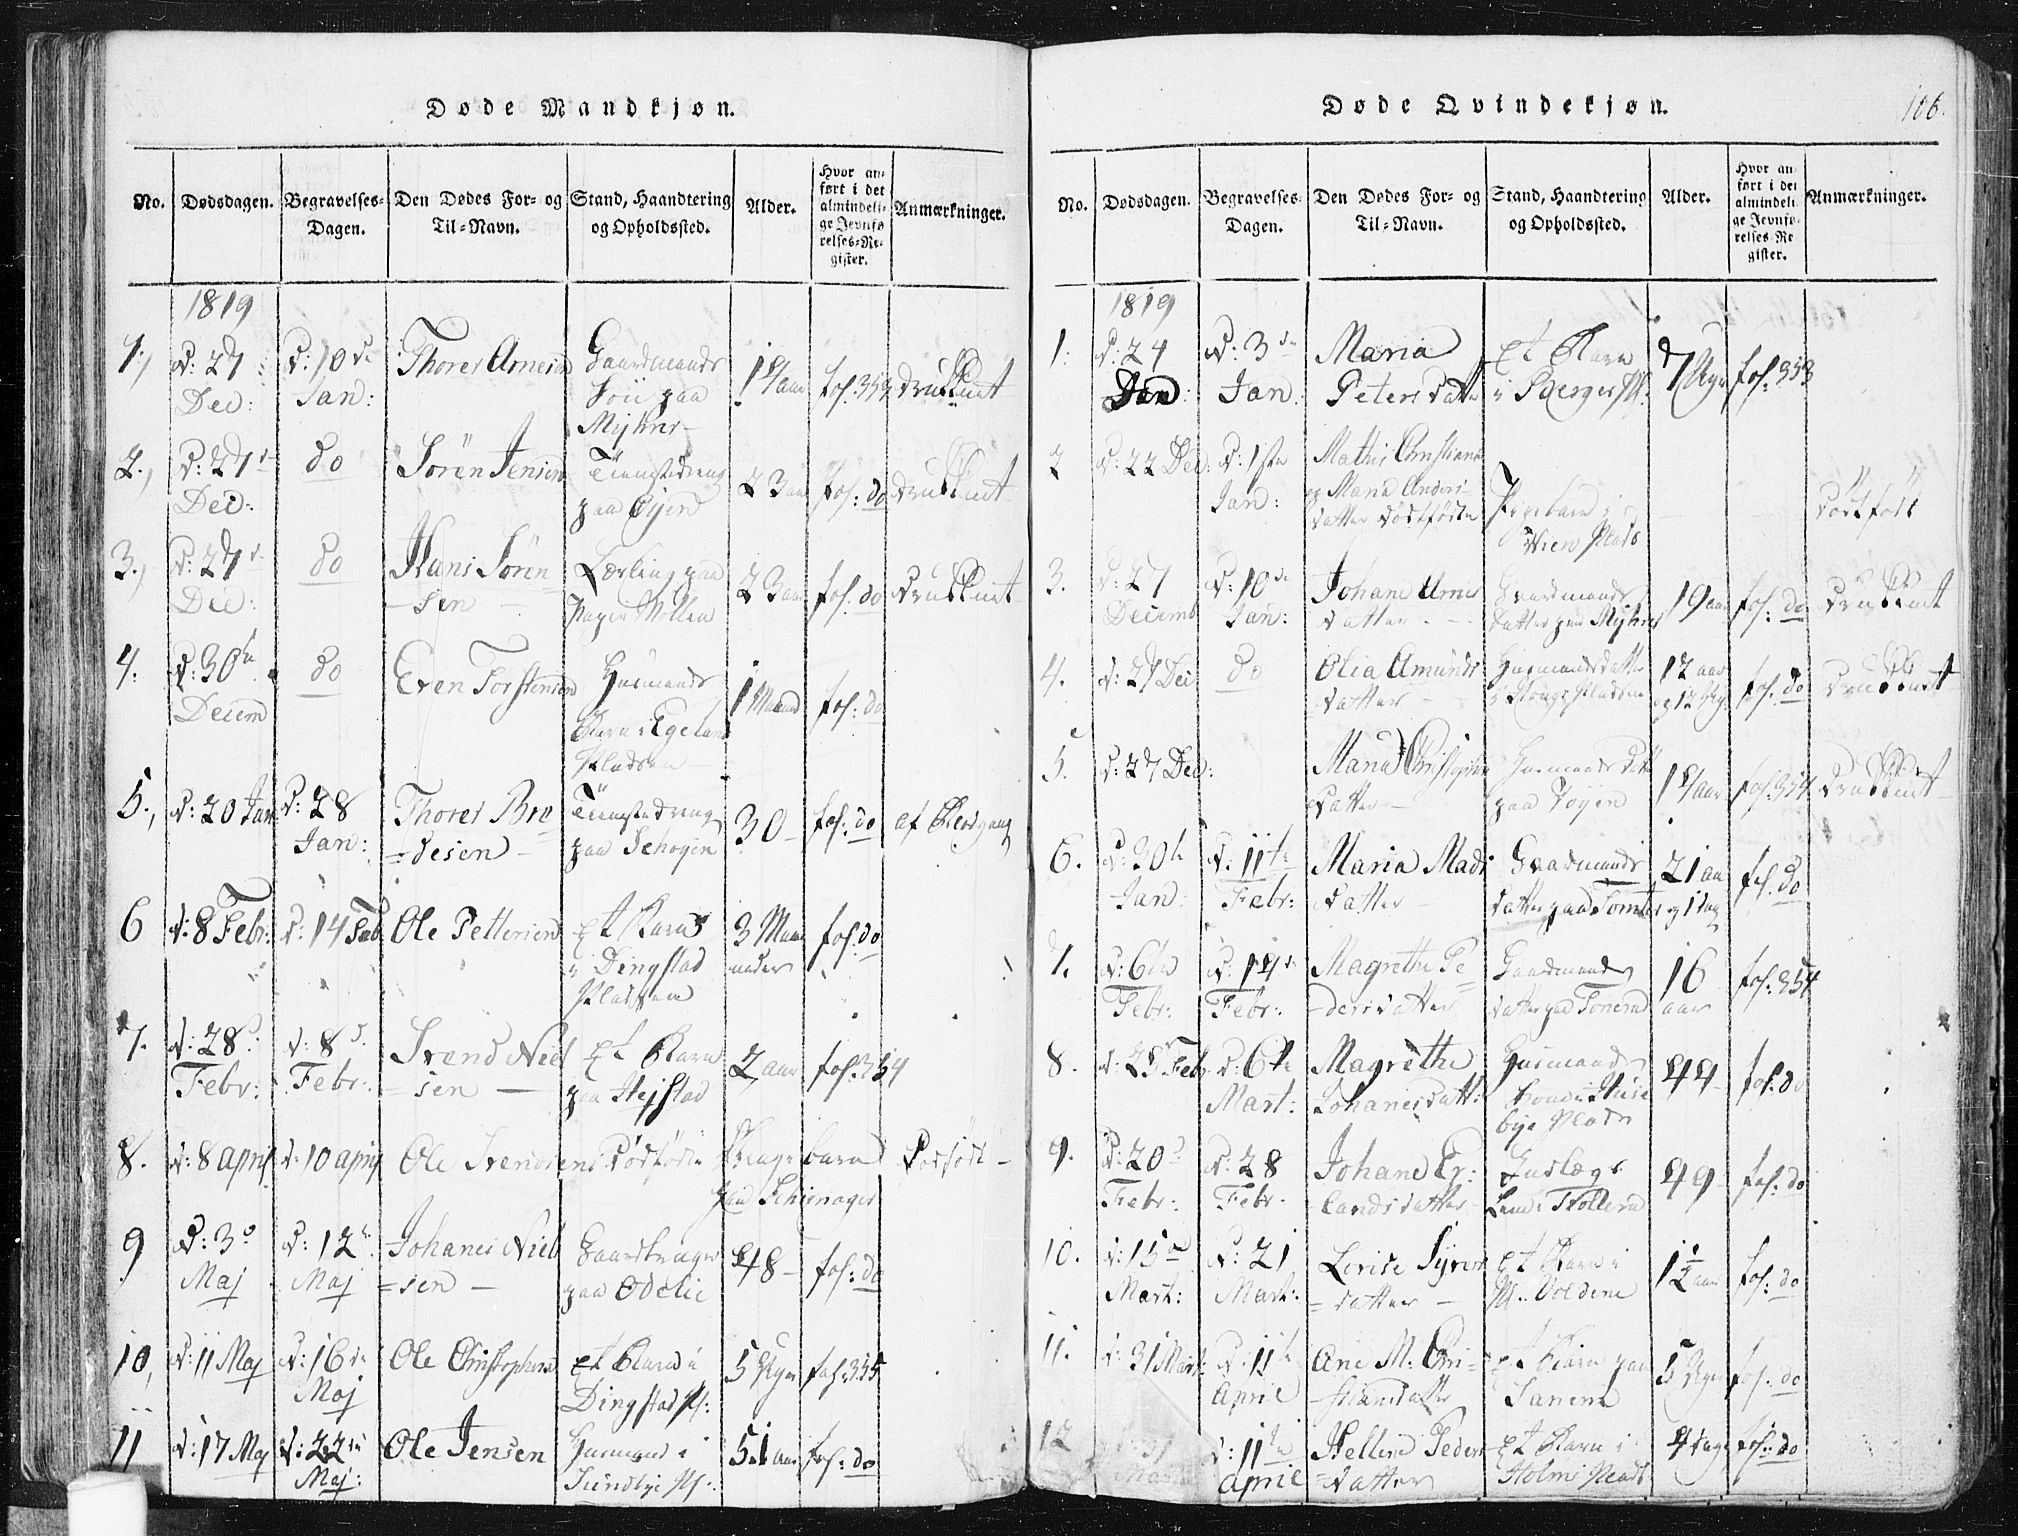 Døde Mandkjøn.
No. Dødsdagen. Begravelses-Dagen. Den Dødes For- og Til-Navn. Stand, Haandtering og Opholdssted. Alder. Hvor anført i det almindelige Jevnførelses-Register. Anmærkninger.
1819
1, d: 27 Dec: d: 10de Jan: Thorer Arnesen Gaardmands Sön paa Myhrer 19 aar fol. 353 drucknet
2, d: 27 Dec: do Sören Jensen Tienestedreng paa Öijern 23 aar fol: do drucknet
3, d: 27 Dec: do Hans Sörensen Lærling paa Papir Möllen 23 aar fol: do drucknet
4. d: 30te Decem do Even Torstensen Huusmands Barn i Egeland Pladsen 1 Maaned fol: do
5, d: 20 Jan d: 28 Jan: Thorer Bredesen Tienestedreng paa Schoyen 30 fol: do
6 d: 8 Febr: d: 14 Feb Ole Pettersen Et Barn i Dingstad Pladsen 3 Maaneder fol: do
7. d: 28 Febr: d: 8 Febr. Svend Nielsen Et Barn paa Hejstad 2 aar fol: 354
8. d: 8 April d: 10 April Ole Svendsens dödfödte Drengebarn paa Schienager Dödfödt
9 d: 3 Maj d: 12 Maj Johanes Nielsen Gaardbruger paa Odelie 48 fol: do
10, d: 11 Maj d: 16de Maj Ole Christophersen Et Barn i Dingstad Pl: 5 Uger fol: 355
11 d: 17 Maj d: 22de Maj: Ole Jensen Huusmand i Sundbye Pl: 51 aar fol: do
Døde Qvindekjøn.
106.
No. Dødsdagen. Begravelses-Dagen. Den Dødes For- og Til-Navn. Stand, Haandtering og Opholdssted. Alder. Hvor anført i det almindelige Jevnførelses-Register. Anmærkninger.
1819
1. d: 24 Jan: d: 3de Jan Maria Petersdatter Et Barn i Bierger Pl. 7 Uger fol: 353
2 d: 22 Dec: d: 1ste Jan: Mathis Christians og Maria Andersdatter dödfödte Pigebarn i Wien Plads dödfödt
3. d: 27 Decemb d: 10de Jan: Johane Arnesdatter Gaardmands datter paa Myhrer 19 aar fol: do drucknet
4. d: 27 Dec do Olia Amundsdatter Huusmands datter 12 aar og 12 Uger fol: do drucknet
5. d: 27 Dec: Maria Christophersdatter Huusmands datter paa Toyen 19 aar fol. 354 drucknet
6. d: 30te Jan: d: 11te Febr: Maria Madsdatter Gaardmands datter paa Tomter 21 aar og 1 dag fol. do
7. d: 6te Febr: d: 14de Febr: Magrethe Pedersdatter Gaardmands datter paa 16 aar fol: 354
8. d: 25 Feb d: 6te Mart: Magrethe Johanesdatt: Huusmands Kone i Husebye Plads 44 fol: do
9. d: 20 Febr: d: 28 Febr. Johane Erlandsdatter Indlægs Lem i Tollerud 49 fol: do
10. d: 15de Mart: d: 21 Mart: Lovise Syversdatter Et Barn i Pl. Voldene 1½ aar fol: do
11. d: 31 Mart: d: 11te April Ane M: Christiansdatter Et Barn paa Sanem 5 Uger fol: do
12 d: 11te April Hellene Pedersdatter Et Barn i Holms Plads 4 dage fol: do